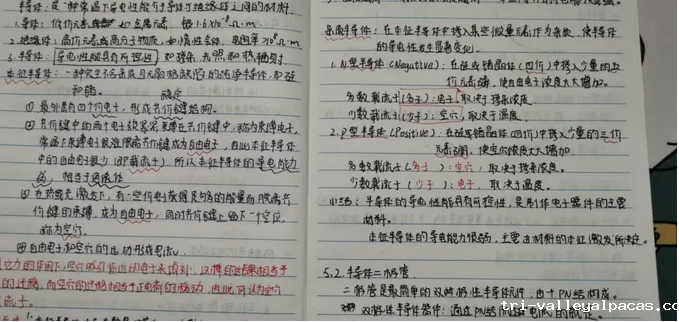 半导体:是一种常温下导电性能介于导体与绝缘体之间的材料.
1.导体:低价元素
2.绝缘体:高价元素或高分子物质,如惰性气体,电阻率
3.半导体:导电性能具有可控性 如掺杂,光照和热辐射
本征半导体:一种完全不含杂质且无晶格缺陷的纯净半导体,如硅
和锗. 稳定
① 最外层有四个价电子,形成共价键结构.
② 共价键中的两个电子被紧紧束缚在共价键中,称为束缚电子,
常温下束缚电子很难脱离共价键成为自由电子,因此本征半导体
中的自由电子很少(即载流子),所以本征半导体的导电能力
弱,相当于绝缘体
③ 在热或光激发下,有一些价电子获得足够的能量而脱离共
价键的束缚,成为自由电子,同时共价键上留下一个空位,
称为空穴.
④ 自由电子和空穴的运动形成电流
它力的作用下,空穴吸引临近的电子来填补,这样的结果相当于
的迁移,而空穴的迁移相当于正电荷的移动,因此可认为空穴
流子.
杂质半导体:在本征半导体中掺入某些微量元素作为杂质,使半导体
的导电性发生显著变化.
1.N型半导体(Negative):在硅或锗晶体(四价)中掺入少量的五
价元素磷,使自由电子浓度大大增加.
多数载流子(多子):电子,取决于掺杂浓度.
少数载流子(少子):空穴,取决于温度.
2.P型半导体(Positive):在硅或锗晶体(四价)中掺入少量的三价
元素硼,使空穴浓度大大增加.
多数载流子(多子):空穴,取决于掺杂浓度.
少数载流子(少子):电子,取决于温度.
小结:半导体的导电性能具有可控性,是制作电子器件的主要
材料.
本征半导体的导电能力很弱,主要由材料的本征激发所决定.
5.2.半导体二极管
二极管是最简单的双极极性半导体元件,由个PN结构成.
双极性半导体器件:通过PN结
tri-valleyalpacas.com